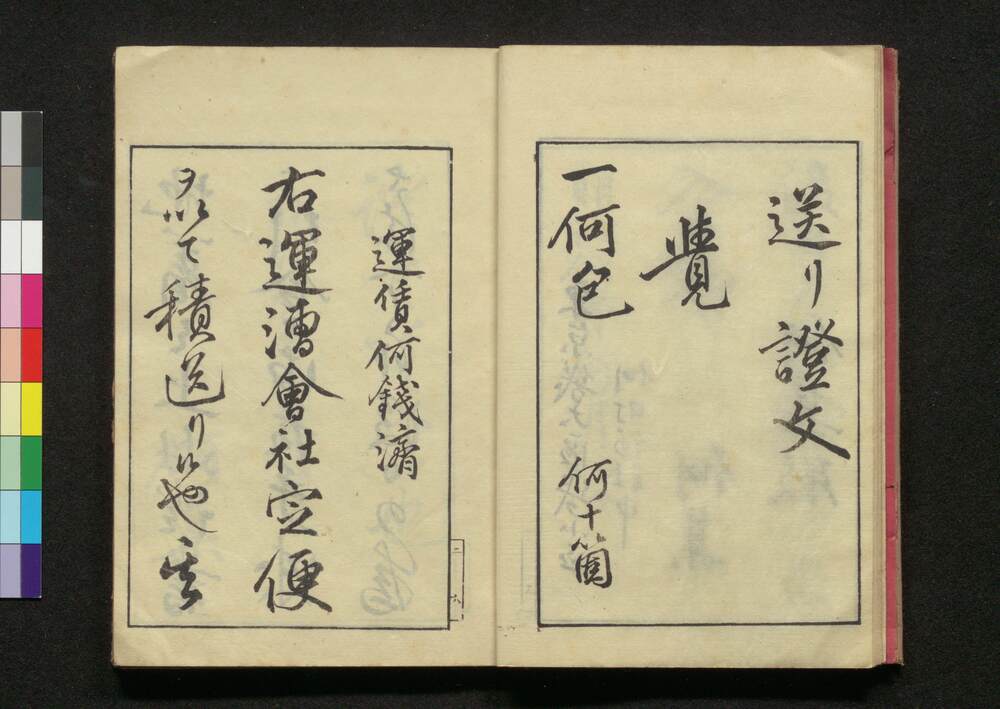 送リ證文
覺
一何包 何十箇
運賃何錢濟
右運漕會社定便
ヲ以て積送リ候也